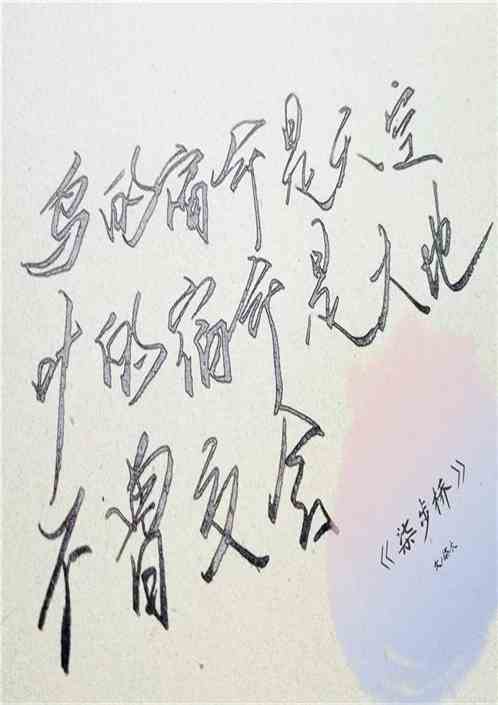 鸟的宿命是天空
叶的宿命是大地
不曾交会
《柒步桥》